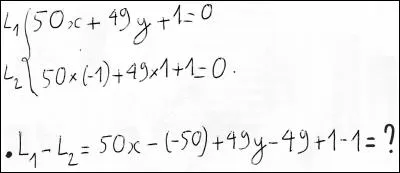 L₁ { 50x + 49y + 1 = 0
L₂ { 50×(-1) + 49×1 + 1 = 0.
• L₁ - L₂ = 50x - (-50) + 49y - 49 + 1 - 1 = ?